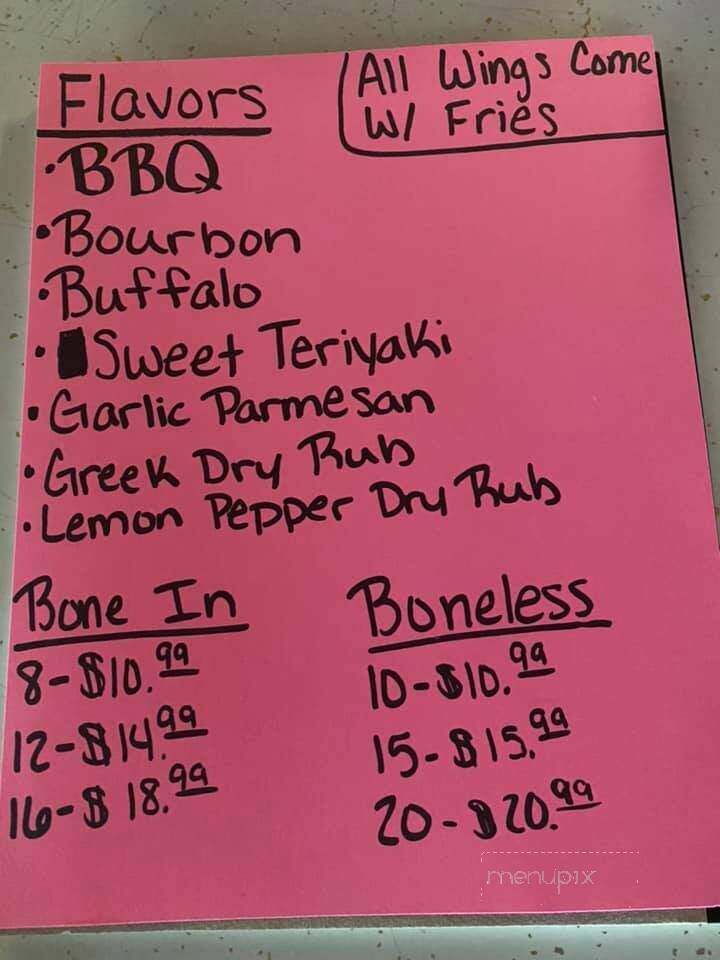 Flavors
All Wings Come
W/ Fries
• BBQ
• Bourbon
• Buffalo
• Sweet Teriyaki
• Garlic Parmesan
• Greek Dry Rub
• Lemon Pepper Dry Rub
Bone In
8-$10.99
12-$14.99
16-$18.99
Boneless
10-$10.99
15-$15.99
20-$20.99
menupix